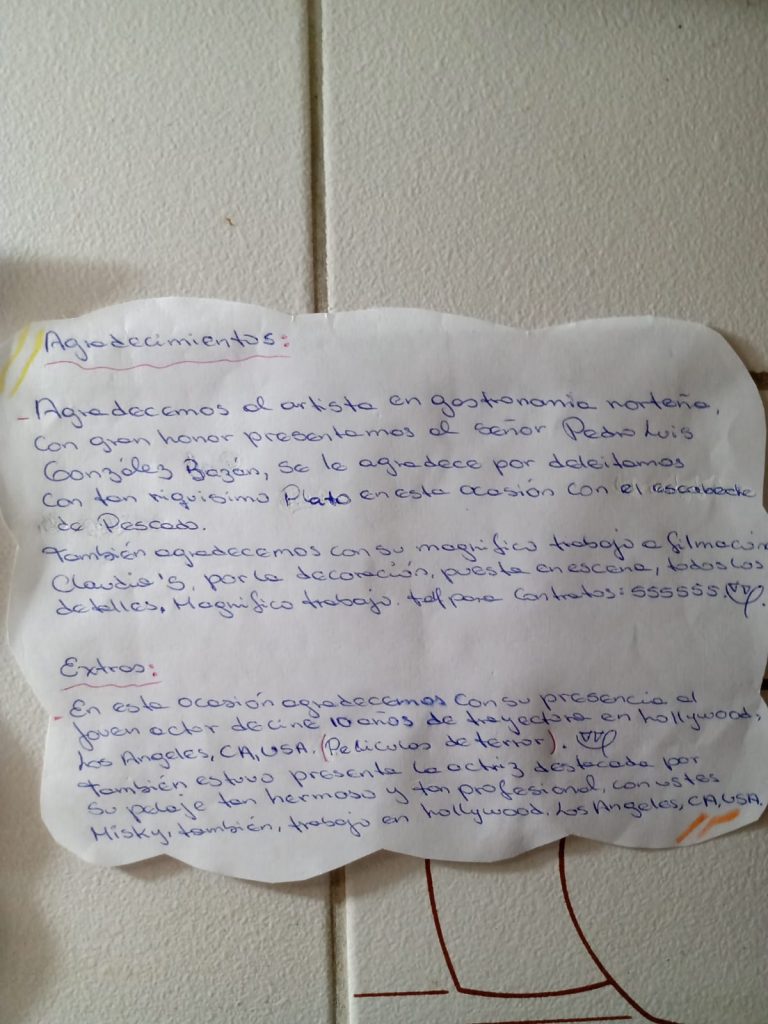 Agradecimientos:
- Agradecemos al artista en gastronomía norteña,
con gran honor presentamos al señor Pedro Luis
González Bazán, se le agradece por deleitarnos
con tan riquisimo Plato en esta ocasión con el escabeche
de Pescado.
también agradecemos con su magnifico trabajo a filmación
Claudia's, por la decoración, puesta en escena, todos los
detalles, Magnifico trabajo. telf para contratos: 555555.
Extras:
- En esta ocasión agradecemos con su presencia al
joven actor de cine 10 años de trayectora en hollywood,
Los Angeles, CA, USA. (Peliculas de terror).
también estuvo presente la actriz destacada por
su pelaje tan hermoso y tan profesional, con ustes
Misky, también, trabajo en hollywood, Los Angeles, CA, USA.